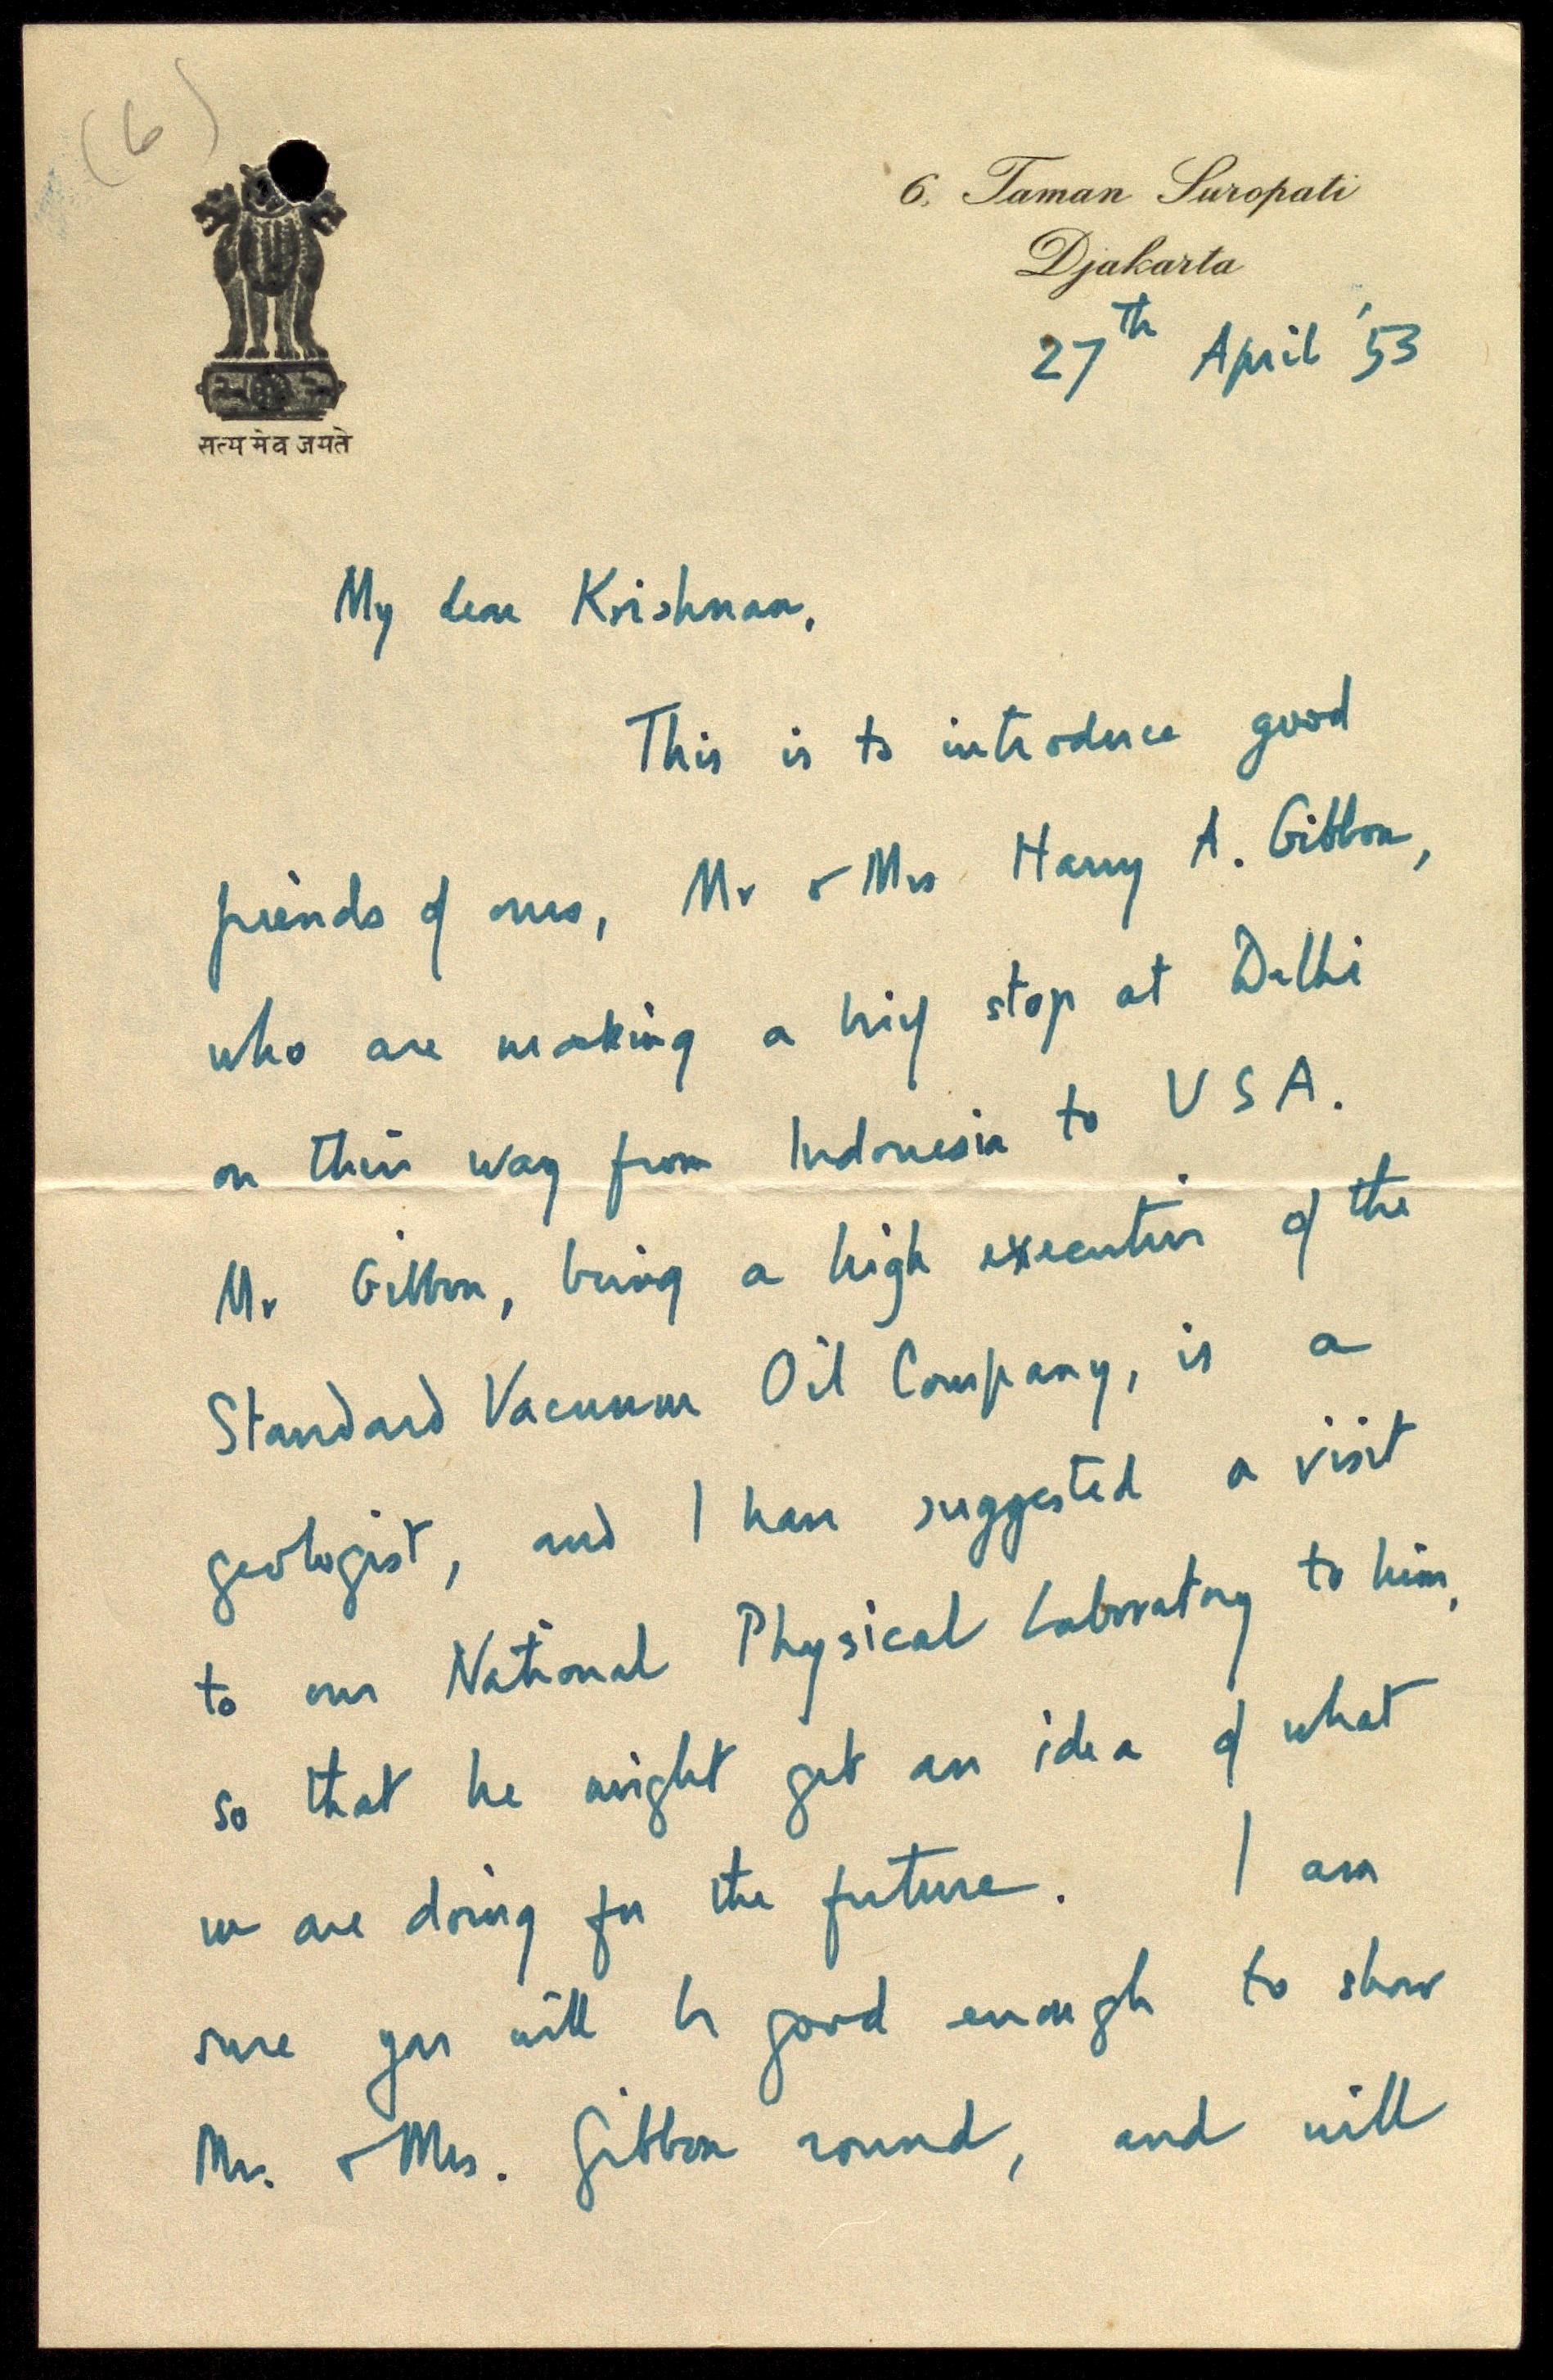 (6)
6, Taman Suropati
Djakarta
27th April '53
सत्यमेव जयते
My dear Krishnan,
This is to introduce good
friends of ours, Mr & Mrs Harry A. Gibbon,
who are making a brief stop at Delhi
on their way from Indonesia to USA.
Mr Gibbon, being a high executive of the
Standard Vacuum Oil Company, is a
geologist, and I have suggested a visit
to our National Physical Laboratory to him,
so that he might get an idea of what
we are doing for the future. I am
sure you will be good enough to show
Mr. & Mrs. Gibbon round, and will